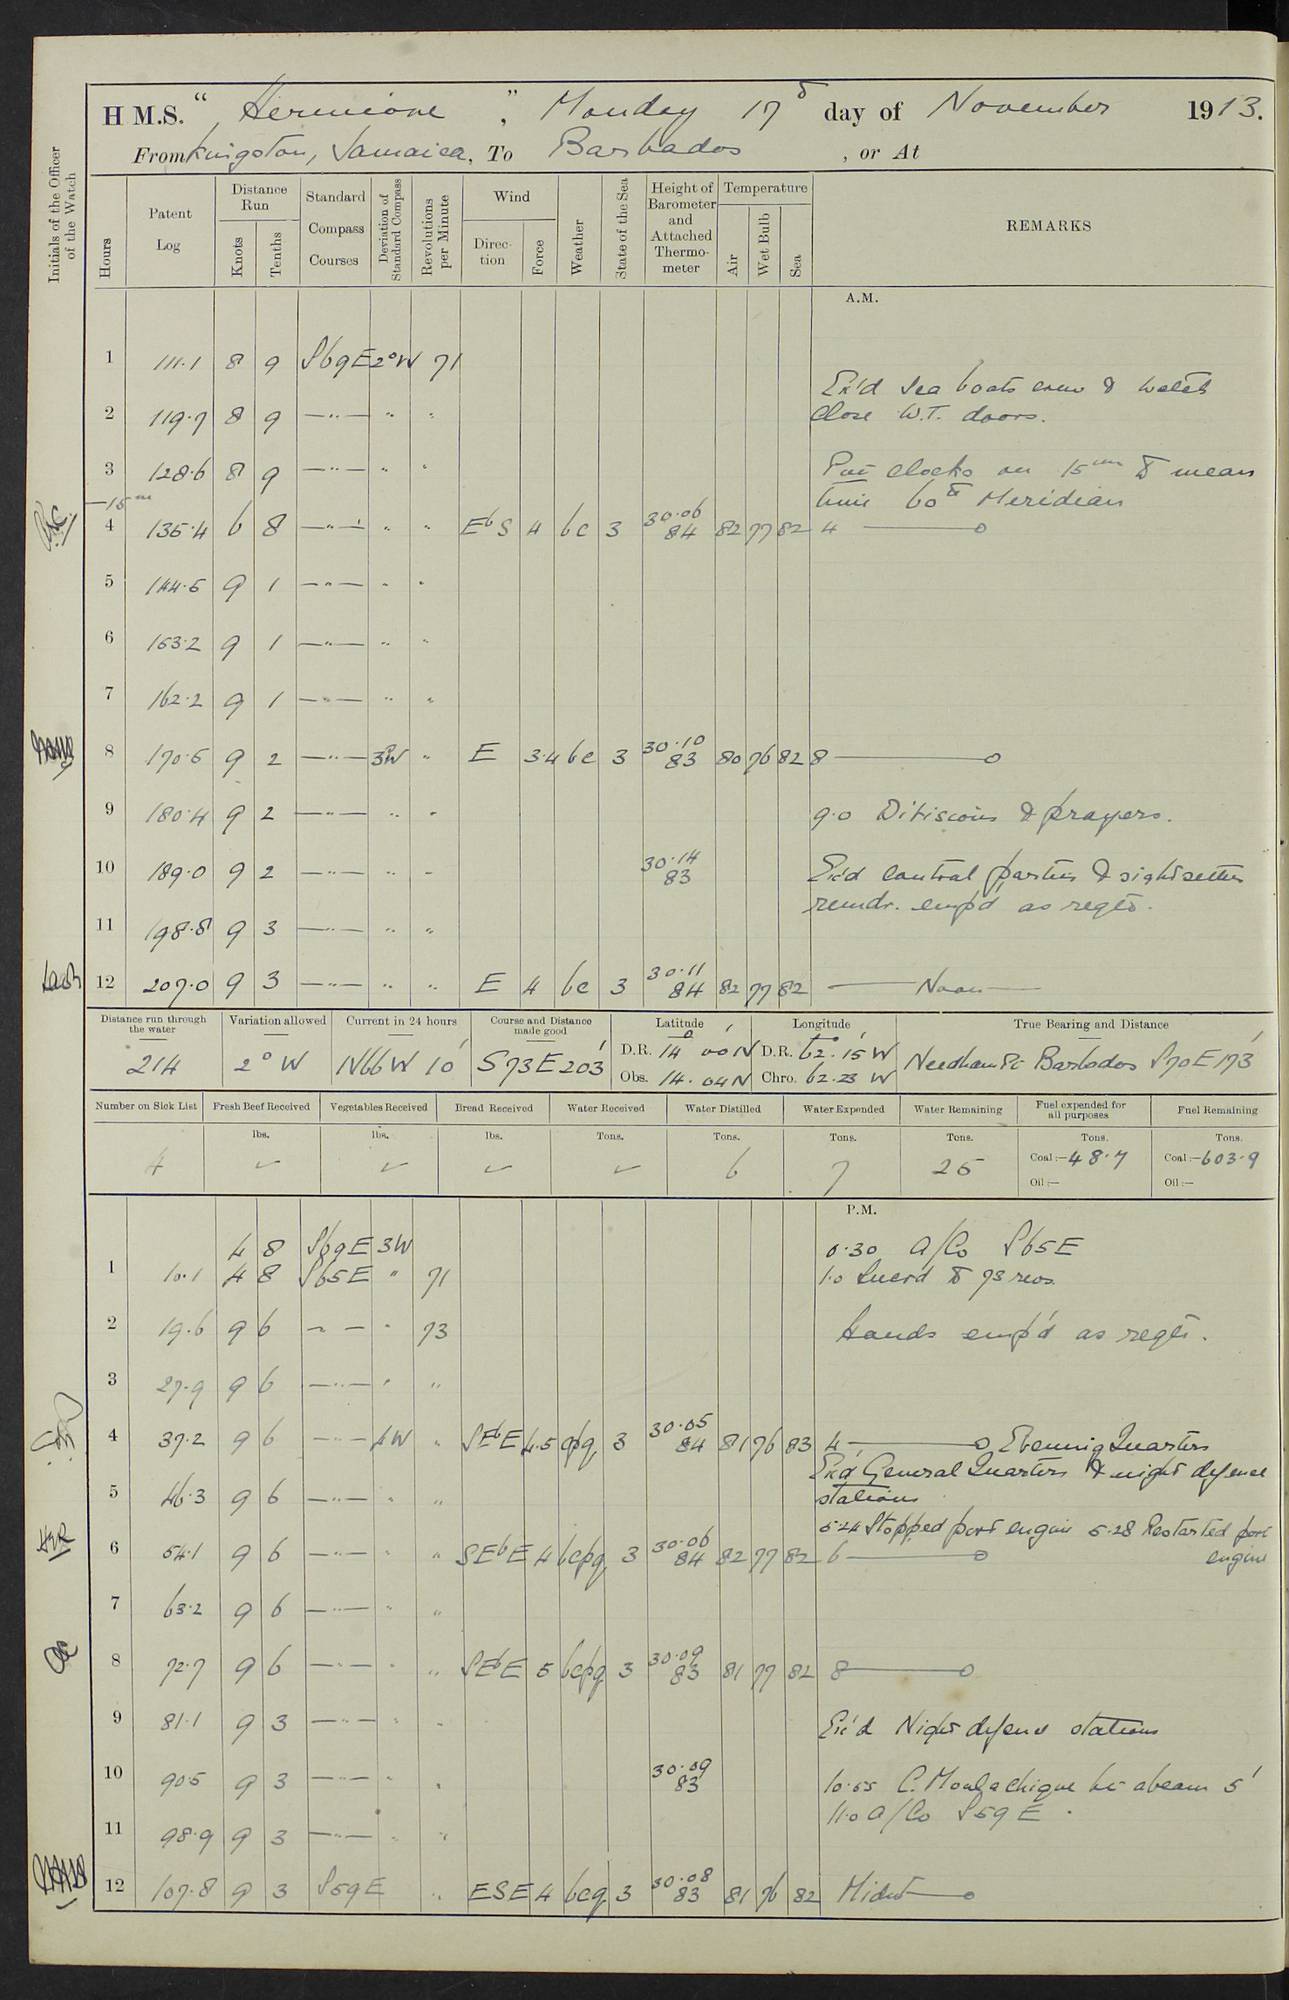 H M.S. “ Hermione ”, Monday 17th day of November 1913.
From Kingston, Jamaica, To Barbados , or At
Initials of the Officer of the Watch
Hours
Patent Log
Distance Run
Knots
Tenths
Standard Compass Courses
Deviation of Standard Compass
Revolutions per Minute
Wind
Direction
Force
Weather
State of the Sea
Height of Barometer and Attached Thermometer
Temperature
Air
Wet Bulb
Sea
REMARKS
A.M.
1 111.1 8 9 S69E 2°W 71
Ex'd sea boats crew & watch
2 119.7 8 9 —"— " " close W.T. doors.
3 128.6 8 9 —"— " " Put clocks on 15m to mean
—15m time 60th Meridian
4 135.4 6 8 —"— " " EbS 4 bc 3 30.06 84 82 77 82 4 ———o
5 144.5 9 1 —"— " "
6 153.2 9 1 —"— " "
7 162.2 9 1 —"— " "
8 170.5 9 2 —"— 3W " E 3.4 bc 3 30.10 83 80 76 82 8 ———o
9 180.4 9 2 —"— " " 9.0 Divisions & prayers.
10 189.0 9 2 —"— " " 30.14 83 Ex'd control parties & sightsetters
remdr. emp'd as reqte.
11 198.8 9 3 —"— " "
12 207.0 9 3 —"— " " E 4 bc 3 30.11 84 82 77 82 ——Noon——
Distance run through the water
214
Variation allowed
2° W
Current in 24 hours
N66W 10'
Course and Distance made good
S73E 203'
Latitude
D.R. 14° 00'N
Obs. 14.04N
Longitude
D.R. 62°.15'W
Chro. 62.23 W
True Bearing and Distance
Needham Pt Barbados S70E 173'
Number on Sick List
4
Fresh Beef Received
lbs.
Vegetables Received
lbs.
Bread Received
lbs.
Water Received
Tons.
Water Distilled
Tons.
6
Water Expended
Tons.
7
Water Remaining
Tons.
25
Fuel expended for all purposes
Tons.
Coal:—48.7
Oil:—
Fuel Remaining
Tons.
Coal:—603.9
Oil:—
P.M.
4 8 S69E 3W 0.30 A/Co S65E
1 10.1 4 8 S65E " 71 1.0 Incrd to 73 revs.
2 19.6 9 6 — — " 73 Hands emp'd as reqte.
3 27.9 9 6 —"— " "
4 37.2 9 6 —"— 4W " SEbE 4.5 cpq 3 30.05 84 81 76 83 4 ———o Evening Quarters
Ex'd General Quarters & night defence
5 46.3 9 6 —"— " " stations
5.24 Stopped port engine 5.28 Restarted port
engine
6 54.1 9 6 —"— " " SEbE 4 bcpq 3 30.06 84 82 77 82 6 ———o
7 63.2 9 6 —"— " "
8 72.7 9 6 —"— " " SEbE 5 bcpq 3 30.09 83 81 77 82 8 ———o
9 81.1 9 3 —"— " " Ex'd Night defence stations
10 90.5 9 3 —"— " " 30.09 83 10.55 C. Moulachique lt abeam 5'
11.0 A/Co S59E.
11 98.9 9 3 —"— " "
12 107.8 9 3 S59E " ESE 4 bcq 3 30.08 83 81 76 82 Midnt ———o